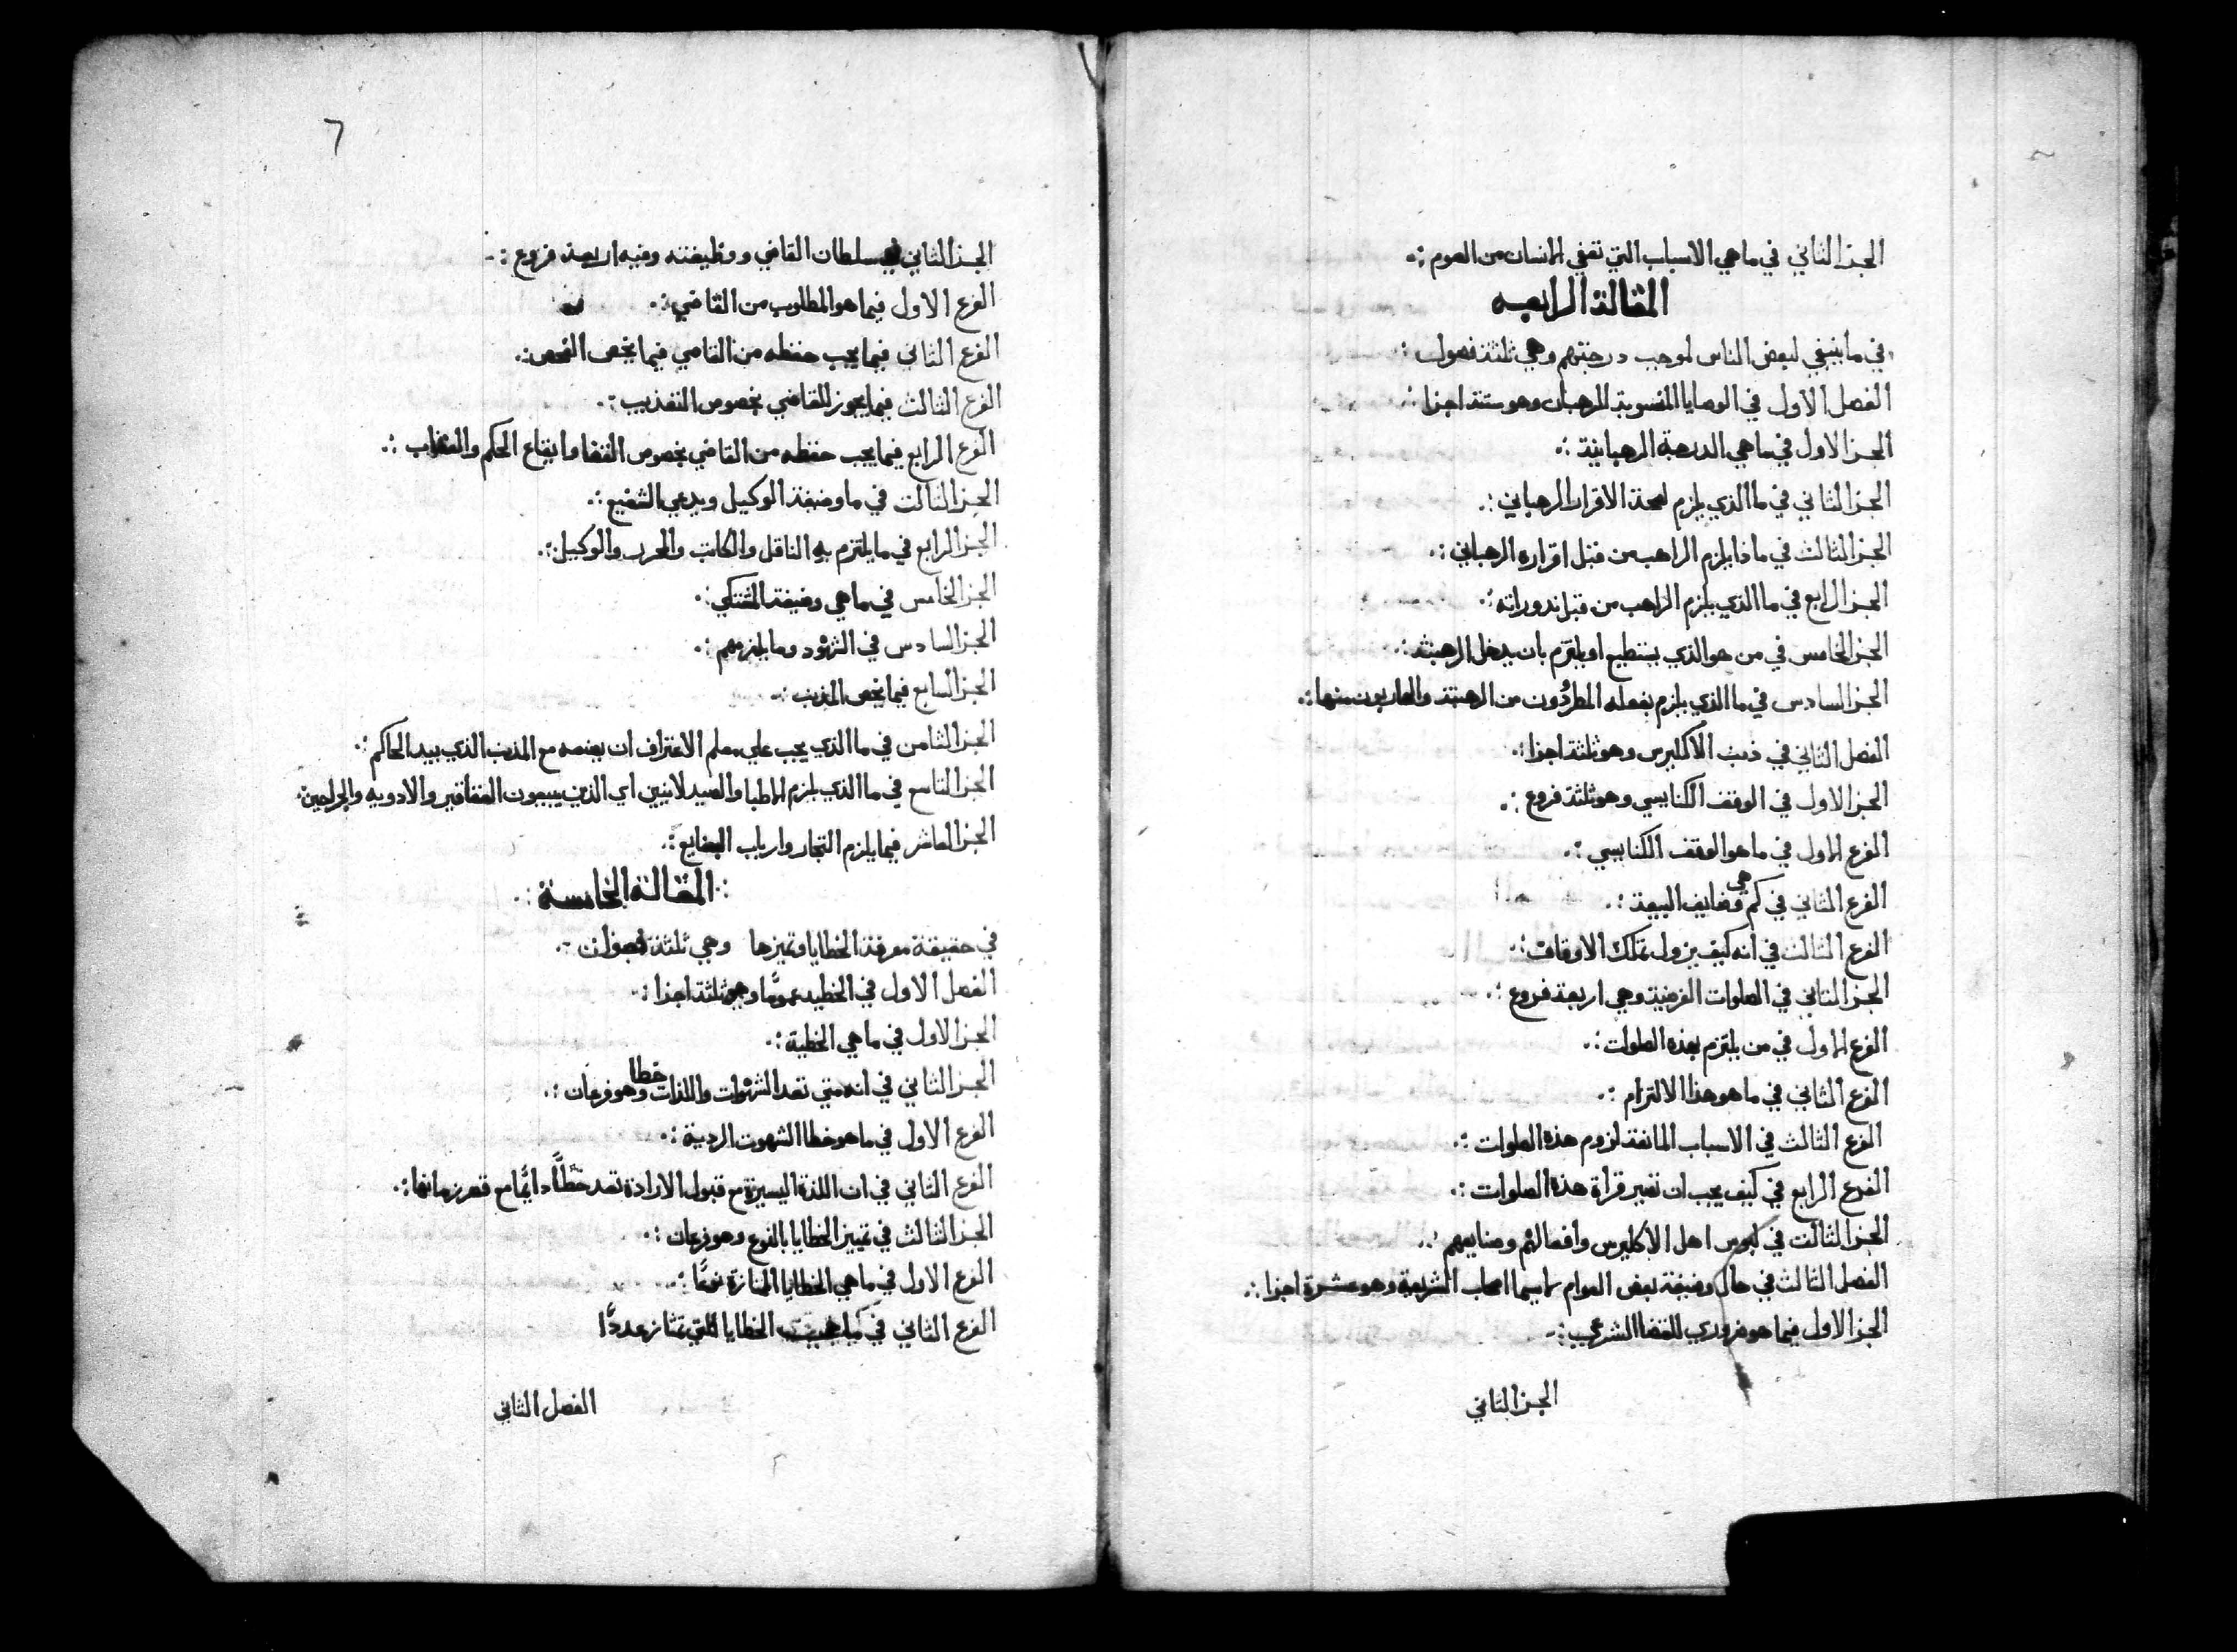 الجزء الثاني في ما هي الاسباب التي تعفي الانسان من الصوم
المقالة الرابعه
في ما ينبغي لبعض الناس بموجب درجتهم وهي ثلثة فصول
الفصل الاول في الوصايا المنسوبة للرهبان وهو ستة اجزا
الجزء الاول في ما هي الدرجة الرهبانية
الجزء الثاني في ما الذي يلزم لصحة الاقرار الرهباني
الجزء الثالث في ماذا يلزم الراهب من قبل اقراره الرهباني
الجزء الرابع في ما الذي يلزم الراهب من قبل ندوراته
الجزء الخامس في من هو الذي يستطيع او يلتزم بان يدخل الرهبنة
الجزء السادس في ما الذي يلزم بفعله المطرُدون من الرهبنة والهاربون منها
الفصل الثاني في الاكليرس وهو ثلثة اجزا
الجزء الاول في الوقف الكنايسي وهو ثلثة فروع
الفرع الاول في ما هو الوقف الكنايسي
الفرع الثاني في كم هي وضايف البيعة
الفرع الثالث في انه كيف يزول تملك الاوقاف
الجزء الثاني في الصلوات الفرضية وهي اربعة فروع
الفرع الاول في من يلتزم بهذه الصلوات
الفرع الثاني في ما هو هذا الالتزام
الفرع الثالث في الاسباب المانعة لزوم هذه الصلوات
الفرع الرابع في كيف يجب ان تصير قراة هذه الصلوات
الجزء الثالث في لبوس اهل الاكليرس وافعالهم وصنايعهم
الفصل الثالث في حال وضيفة بعض العوام لاسيما اصحاب الشريعة وهو عشرة اجزا
الجزء الاول فيما هو ضروري للقضا الشرعي
الجزء الثاني
٦
الجزء الثاني في سلطان القاضي ووظيفته وفيه اربعة فروع
الفرع الاول فيما هو المطلوب من القاضي
الفرع الثاني فيما يجب حفظه من القاضي فيما يخص الفحص
الفرع الثالث فيما يجوز للقاضي بخصوص التعذيب
الفرع الرابع فيما يجب حفظه من القاضي بخصوص القضا وايقاع الحكم والعقاب
الجزء الثالث في ما وضيفة الوكيل ويدعي الشفيع
الجزء الرابع في ما يلتزم به الناقل والكاتب والمحرر والوكيل
الجزء الخامس في ما هي وضيفة المشتكي
الجزء السادس في الشهود وما يلزمهم
الجزء السابع فيما يخص المذنب
الجزء الثامن في ما الذي يجب علي معلم الاعتراف ان يصنعه مع المذنب الذي بيد الحاكم
الجزء التاسع في ما الذي يلزم الاطبا والصيدلانيين اي الذين يبيعون العقاقير والادويه والجراحين
الجزء العاشر فيما يلزم التجار وارباب الصنايع
المقالة الخامسة
في حقيقة معرفة الخطايا وتميزها وهي ثلثة فصول
الفصل الاول في الخطيه عمومًا وهو ثلثة اجزا
الجزء الاول في ما هي الخطية
الجزء الثاني في انه متي تعد الشهوات واللذات خطا وهو فرعان
الفرع الاول في ما هو خطا الشهوت الردية
الفرع الثاني في ان اللذة اليسيرة مع قبول الارادة تعد خطًّا دايمًا مع قصر زمانها
الجزء الثالث في تمييز الخطايا بالنوع وهو فرعان
الفرع الاول في ما هي الخطايا الممتازة نوعًا
الفرع الثاني في ما هي الخطايا التي تمتاز عددًا
الفصل الثاني